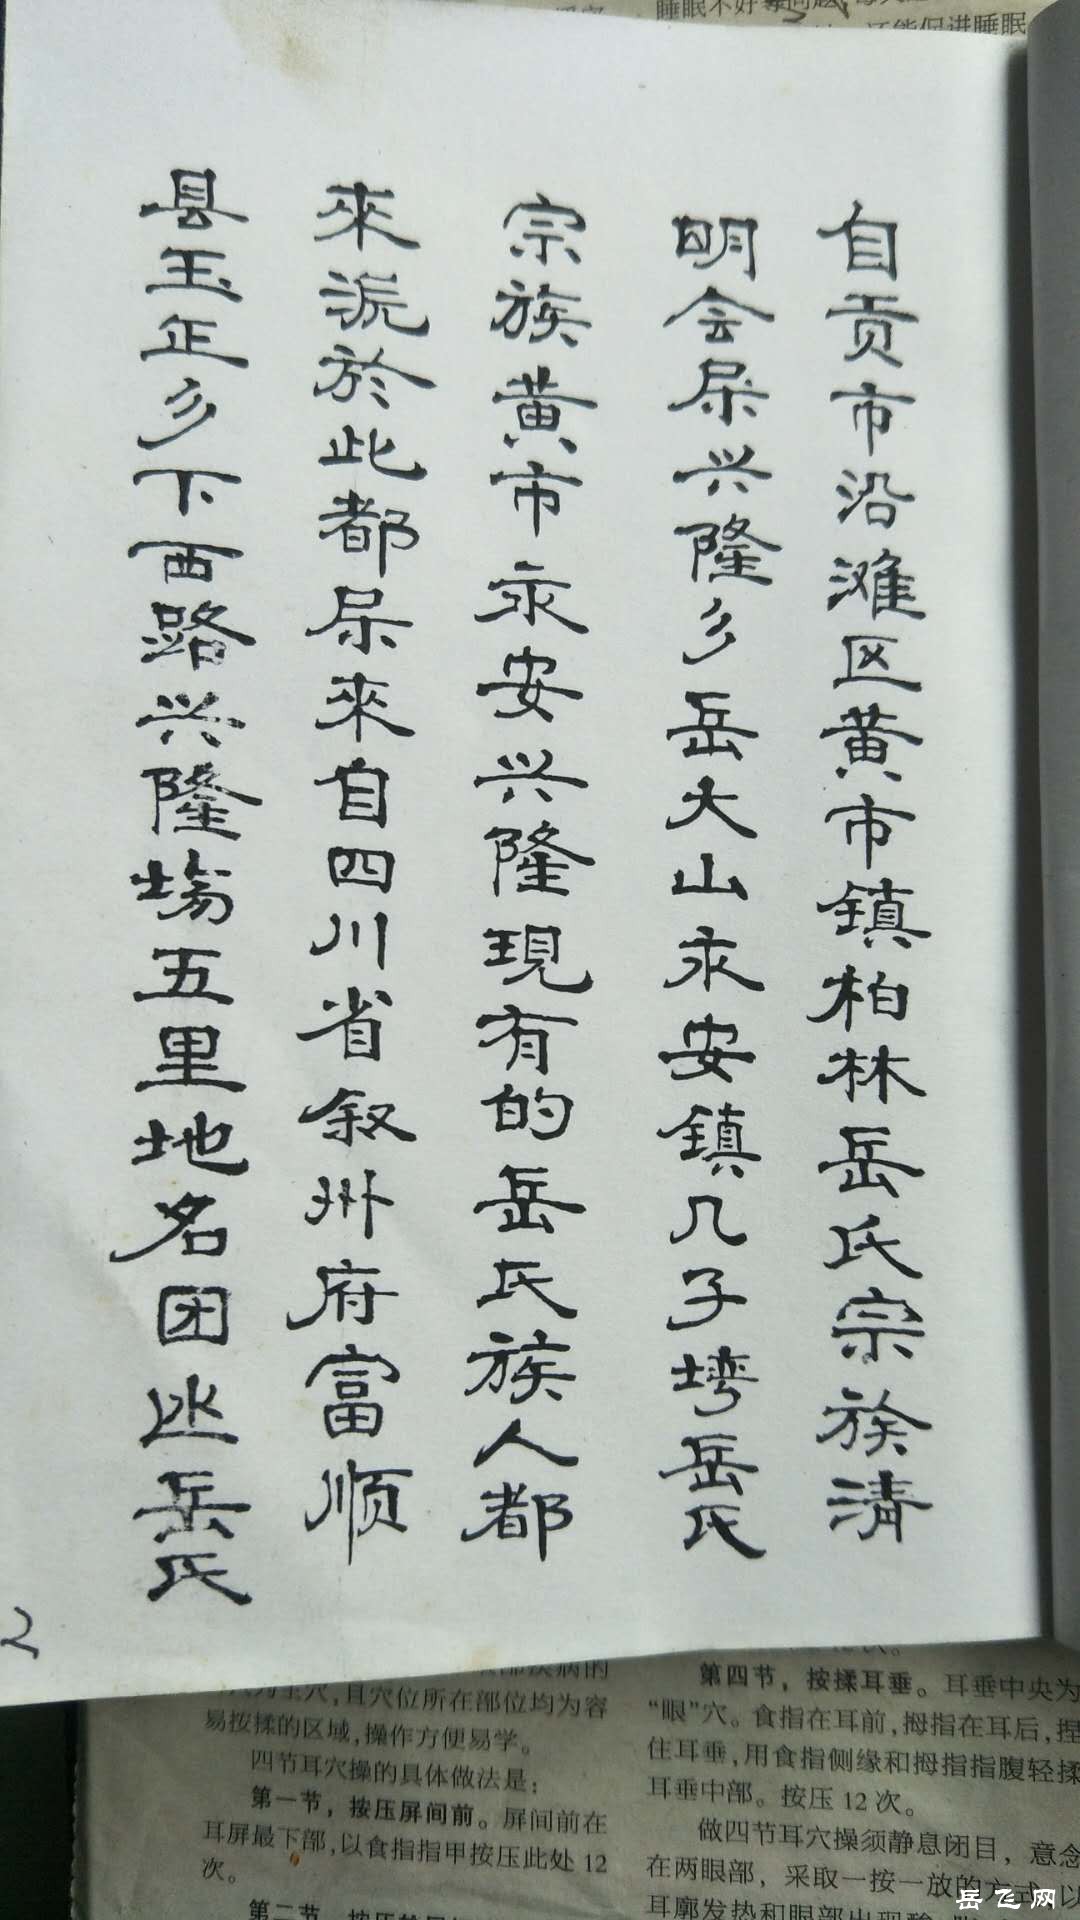 自贡市沿滩区黄市镇柏林岳氏宗族清
明会屎兴隆乡岳大山永安镇几子塆岳氏
宗族黄市永安兴隆現有的岳氏族人都
來派於此都屎來自四川省叙州府富顺
县玉正乡下西路兴隆塲五里地名团凼岳氏
2
睡眠
易按揉的区域，操作方便易学。
四节耳穴操的具体做法是：
第一节，按压屏间前。屏间前在
耳屏最下部，以食指指甲按压此处12
次。
第四节，按揉耳垂。耳垂中央为
“眼”穴。食指在耳前，拇指在耳后，捏
住耳垂，用食指侧缘和拇指指腹轻揉
耳垂中部。按压12次。
做四节耳穴操须静息闭目，意念
在两眼部，采取一按一放的方式，以
岳飞网